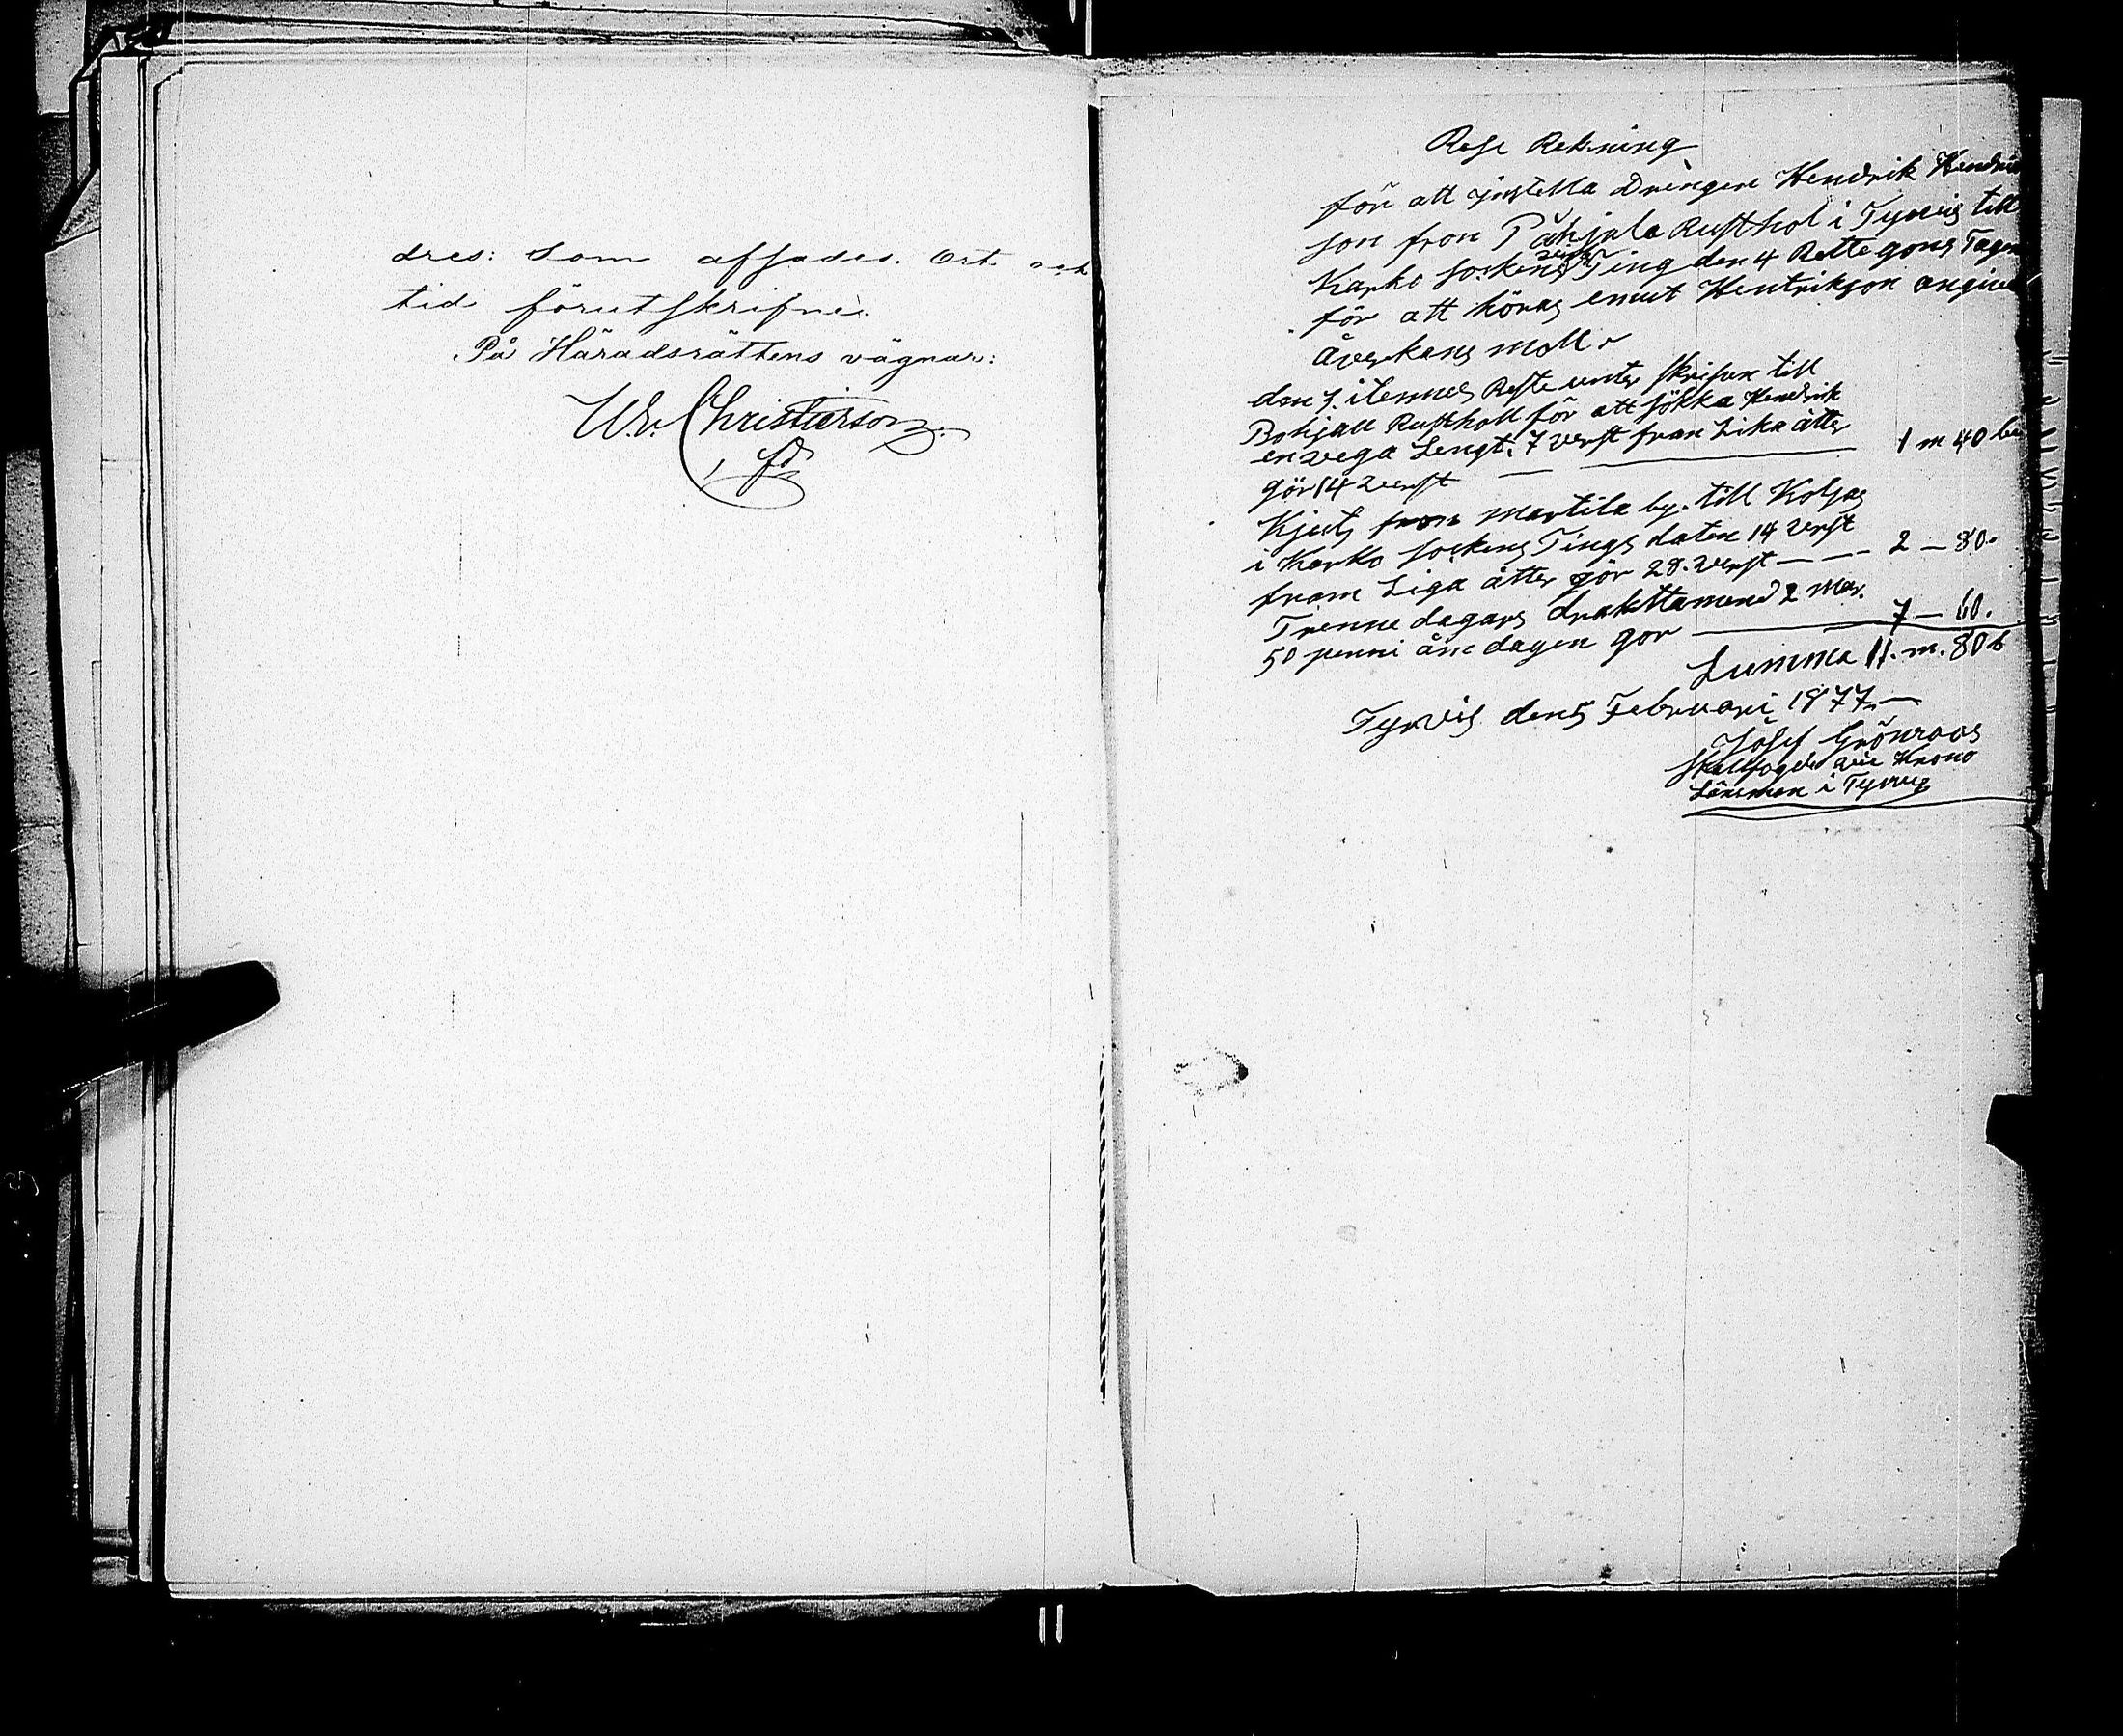 dres: Som afsades. Ort och
tid förutskrifne.
På Häradsrättens vägnar:
W. Christierson.
Rese Rekning
för att instella Drengen Hendrik Hendrik
son fron Påhjala Rusthol i Tyrvis till
Karko Sockens Ting den 4 Rettegons Tagen
för att höras emut Hentrikson angiven
åverkans moll
den 1. itennes Reste unter skrifven till
Pohjall Rustholl för att sökka Hendrik
en vega Lengt. 7 verst fran Lika åtter
gör 14 verst — 1 m 40
Kjuts fron martila by. till Kolsas
i Karko Sockens Tings daten 14 verst
fram Liga åtter gör 28. verst — 2 — 80.
Trenne dagars draktamend 2 mar.
50 penni åm dagen gör — 7 — 60.
Summa 11. m. 80
Tyrvis den 5 Februari 1877. —
Josef Grönroos
Skallfogde vice Krono
Länsman i Tyrvis